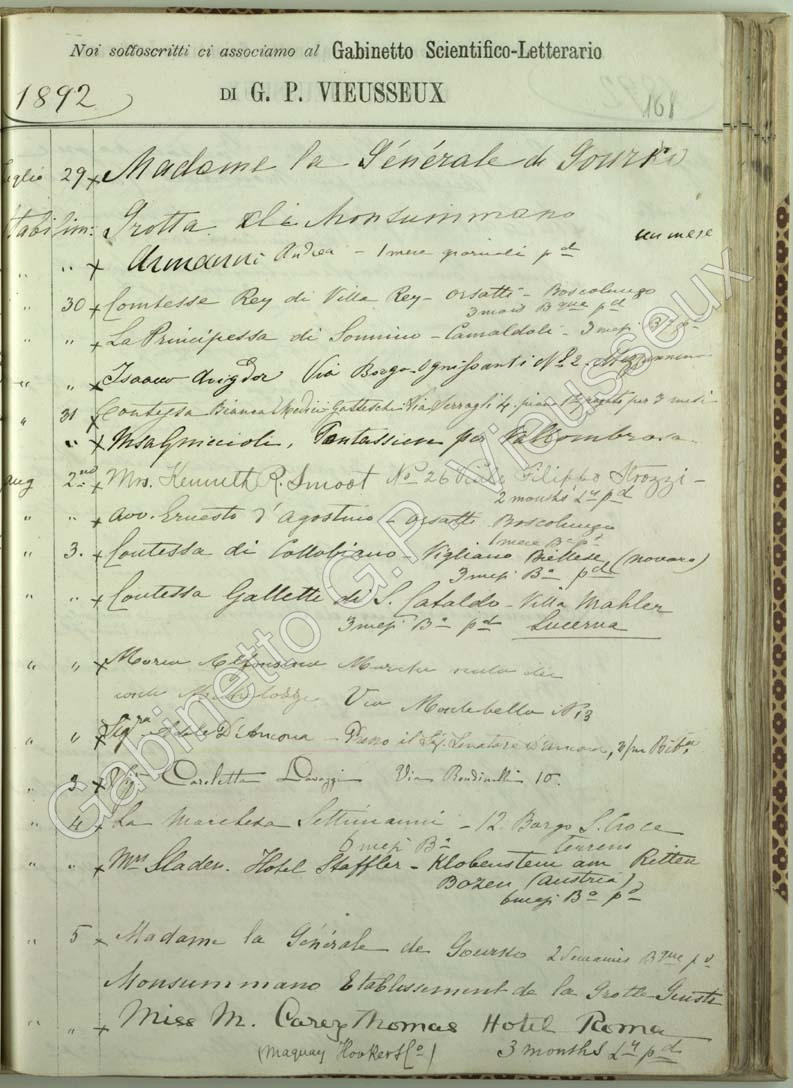 Noi sottoscritti ci associamo al Gabinetto Scientifico-Letterario
1892 DI G. P. VIEUSSEUX 161
29 x Madame la Générale de Gourko
Grotta di Monsummano un mese
" " x Armanni Andrea - 1 mese pd
30 x Comtesse Rey di Villa Rey - Orsatti - Boscolungo
3 mois Bque pd
" " x La Principessa di Sonnino - Camaldoli - 3 mesi
" x Isacco Avigdor Via Borgo Ognissanti No 2
" 31 x Contessa Bianca Medici Via Serragli 4. piano per 3 mesi
" x per Vallombrosa
Aug 2nd x Mrs. Kenneth R. Smoot No 26 Viale Filippo Strozzi -
2 months Ly pd
" " x Avv. Ernesto d'Agostino - Orsatti Boscolungo
1 mese
" 3. x Contessa di Collobiano - Vigliano Biellese (Novara)
3 mesi Ba pd
" " x Contessa Gallette di S. Cataldo - Villa Mahler
3 mesi Ba pd Lucerna
" " x Maria
Via Montebello No 13
" " x Sigra Adele D'Ancona - Presso il Sig. Senatore d'Ancona,
" 3 x Carletta Via 10.
" 4 x La Marchesa Settimanni - 12. Borgo S. Croce
6 mesi Ba terreno
" " x Mrs Sladen. Hotel Staffler - Klobenstein am Ritten
Bozen (Austria)
6 mesi Ba pd
" 5 x Madame la Générale de Gourko 2 Semaines Bque pd
Monsummano Etablissement de la Grotte Giusti
" " x Miss M. Carey Thomas Hotel Roma
(Maquay Hooker & Co) 3 months Ly pd
Gabinetto G.P. Vieusseux